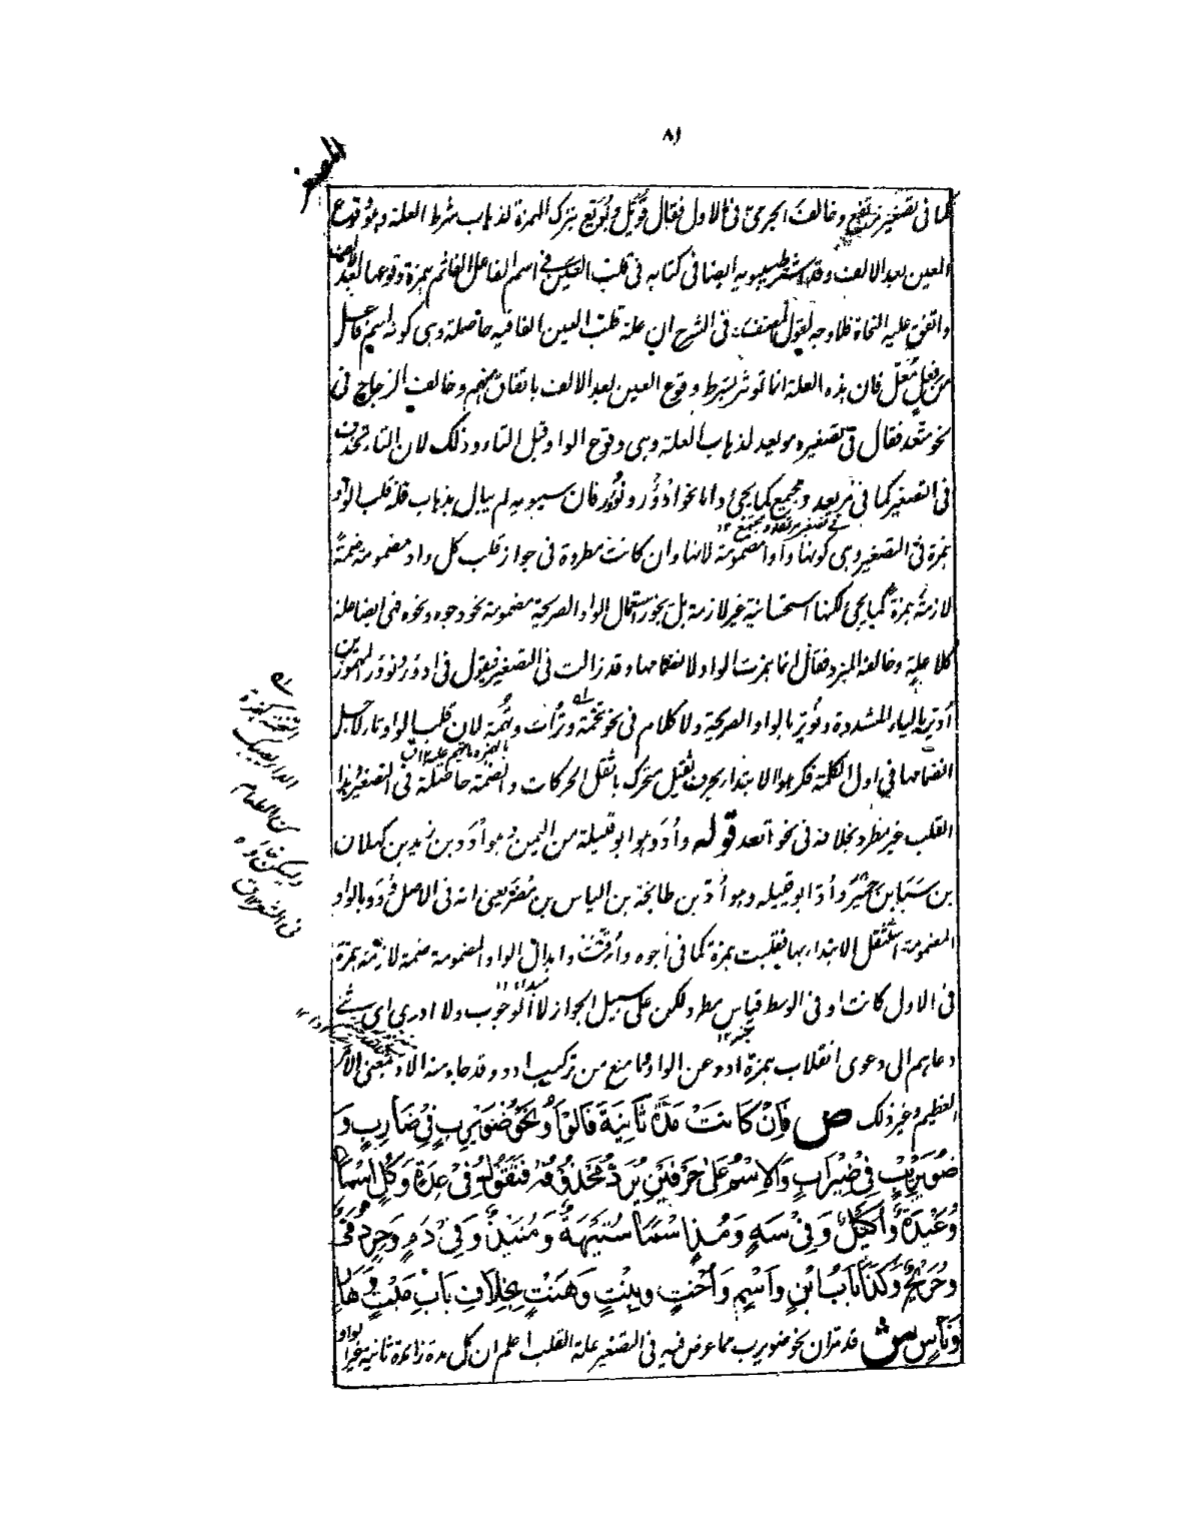 ٨١
كما فى تصغير مرتفع وخالف الجرمى فى الاول فقال قويل وبويع بترك الهمزة لذهاب شرط العلة وهو وقوع
العين بعد الالف وقد اشترط سيبويه ايضا فى كتابه فى قلب العين فى اسم الفاعل القائم بهمزة وقوعها بعد الالف
واتفق عليه النحاة فلا وجه لقول المصنف فى الشرح ان علة قلب العين الفا فيه حاصلة وهى كونه اسم فاعل
من فعل معل فان هذه العلة انما توثر بشرط وقوع العين بعد الالف باتفاق منهم وخالف الزجاج فى
نحو متعد فقال فى تصغيره مويعد لذهاب العلة وهى وقوع الواو قبل التاء وذلك لان التاء تحذف
فى التصغير كما فى مرتعد ومجتمع كما يجئ واما نحو ادؤر ونؤور فان سيبويه لم يبال بذهاب علة قلب الواو
فى تصغير مرتعد ومجتمع ١٢
همزة فى التصغير وهى كونها واوا مضمومة لانها وان كانت مطردة فى جواز قلب كل واو مضمومة ضمة
لازمة همزة كما يجئ لكنها استحسانية غير لازمة بل يجوز استعمال الواو الصريحة مضمومة نحو وجوه ونحوه فهى ايضا علة
كلا علة وخالفه المبرد فقال انما همزت الواو لانضمامها وقد زالت فى التصغير فيقول فى ادؤر ونؤور المهموزين
أديّر بالياء المشددة ونُوَيّر بالواو الصريحة ولا كلام فى نحو تخمة وتراث وتهمة لان قلب الواو تاء لاجل
انضمامها فى اول الكلمة فكرهوا الابتداء بحرف ثقيل متحرك باثقل الحركات والضمة حاصلة فى التصغير وهذا
القلب غير مطرد بخلافه فى نحو اتعد قوله وأُدَد هو ابو قبيلة من اليمن وهو أُدَد بن زيد بن كهلان
بن سَبَأ بن حِمْيَر وأُدّ ابو قبيله وهو أُدّ بن طابخة بن الياس بن مُضَر يعنى انه فى الاصل وُدَد بالواو
المضمومة استثقل الابتداء بها فقلبت همزة كما فى أجوه وأقتت وابدال الواو المضمومة ضمة لازمة همزة
فى الاول كانت او فى الوسط قياس مطرد لكن على سبيل الجواز لا الوجوب ولا ادرى اى شئ
دعاهم الى دعوى انقلاب همزة ادد عن الواو وما منع من تركيب ادد وقد جاء منه الاد بمعنى الأمر
العظيم وغير ذلك ص فَاِنْ كَانَتْ مَدَّةً ثَانِيَةً فَالْوَاوُ نَحْوُ ضُوَيْرِبٍ فِىْ ضَارِبٍ وَ
ضُوَيْرِيْبٍ فِىْ ضِيْرَابٍ وَالْاِسْمُ عَلٰى حَرْفَيْنِ يُرَدُّ مَحْذُوْفُهُ فَتَقُوْلُ فِىْ عِدَةٍ وَكُلْ اسْمًا
وُعَيْدَةٌ وَأُكَيْلٌ وَفِىْ سَهٍ وَمُذْ اسْمًا سُتَيْهَةٌ وَمُنَيْذٌ وَفِىْ دَمٍ وَحِرٍ دُمَىٌّ
وَحُرَيْحٌ وَكَذَا بَابُ ابْنٍ وَاسْمٍ وَأُخْتٍ وَبِنْتٍ وَهَنْتٍ بِخِلَافِ بَابِ مَيْتٍ وَهَارٍ
وَنَاسٍ ش قد مر ان نحو ضويرب مما عرض فيه فى التصغير علة القلب اعلم ان كل مدة زائدة ثانية غير الواو